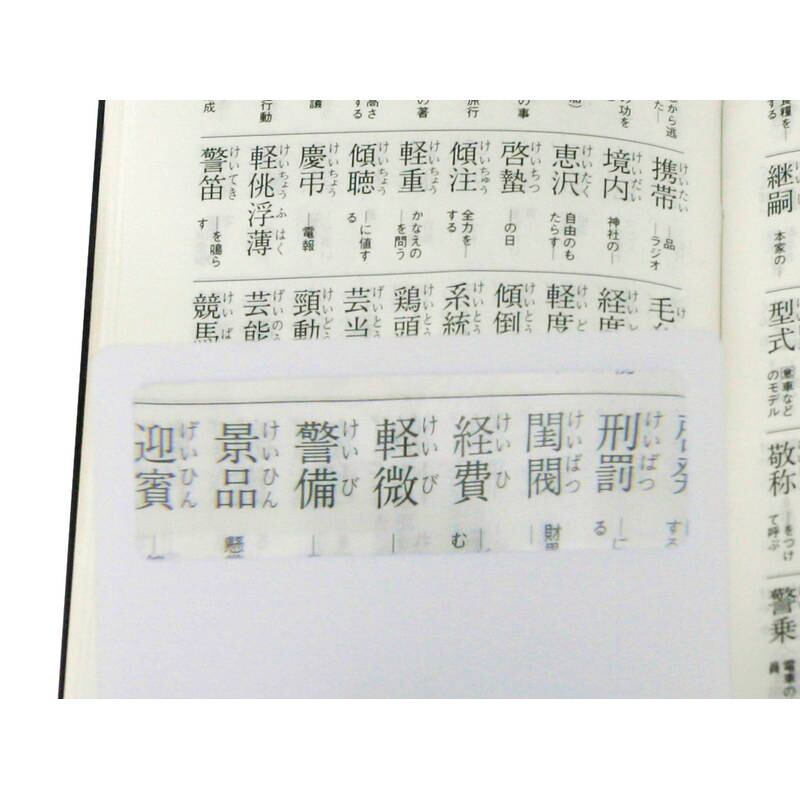 食糧を―
する
継嗣
本家の―
型式
車など
のモデル
敬称
―をつけ
て呼ぶ
警乗
電車の
員
から逃
た―
の功を
の事
旅行
の著
高さ
する
議
行動
成
携帯 けいたい
―品
ラジオ
境内 けいだい
神社の―
恵沢 けいたく
自由のも
たらす―
啓蟄 けいちつ
―の日
傾注 けいちゅう
全力を―
する
軽重 けいちょう
かなえの
―を問う
傾聴 けいちょう
―に値す
る
慶弔 けいちょう
―電報
軽佻浮薄 けいちょうふはく
警笛 けいてき
―を鳴ら
す
毛 け
経度 けいど
軽度 けいど
傾倒 けいとう
系統 けいとう
鶏頭 けいとう
芸当 げいとう
頸動 けいどう
芸能 げいのう
競馬 けいば
する
刑罰 けいばつ
―に
る
閨閥 けいばつ
財界
経費 けいひ
―
む
軽微 けいび
―
警備 けいび
―
景品 けいひん
懸賞
迎賓 げいひん
―